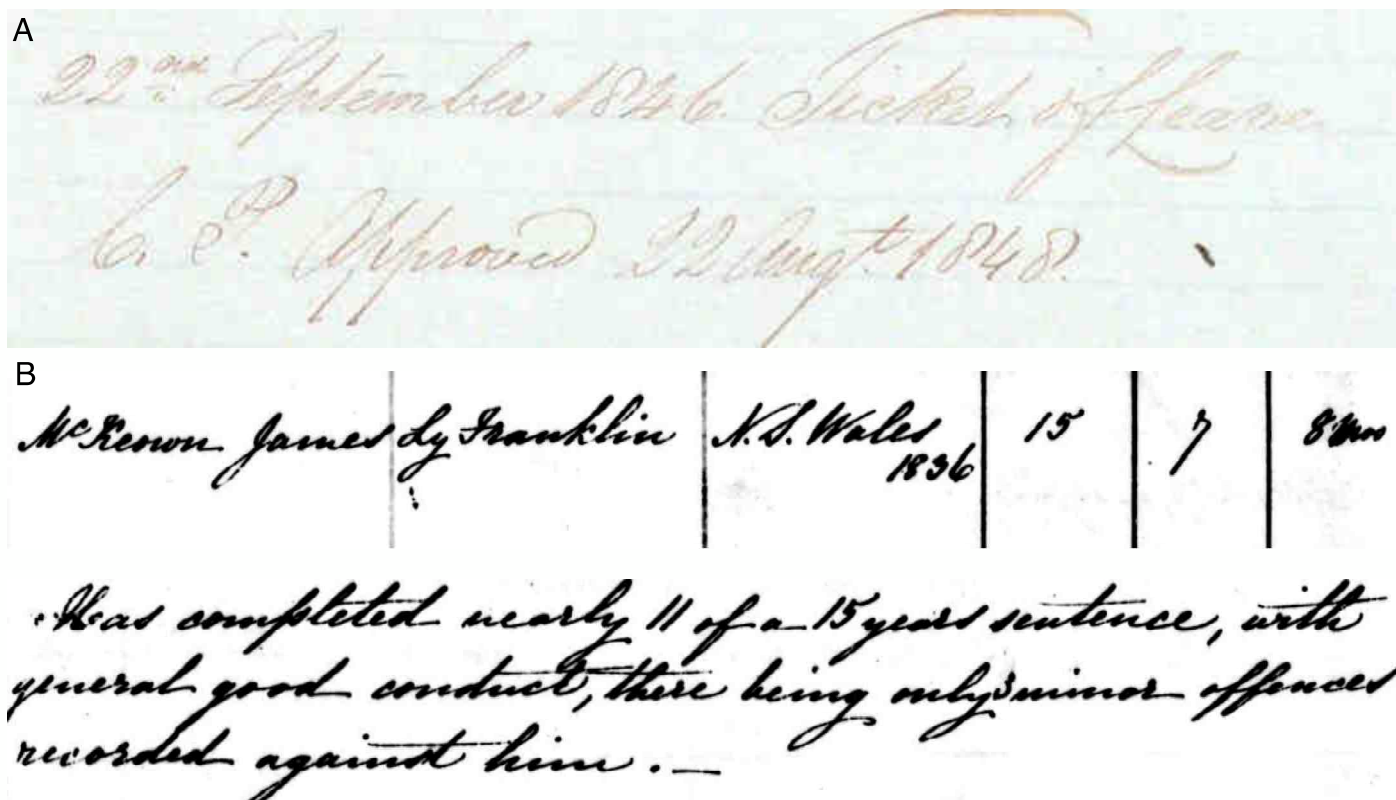 A
22nd September 1846. Ticket of Leave
C. P. Approved 22 Augt. 1848.
B
McKeown James Ly Franklin N.S. Wales 15 7 8 Mos
1836
Has completed nearly 11 of a 15 years sentence, with
general good conduct, there being only 3 minor offences
recorded against him. —